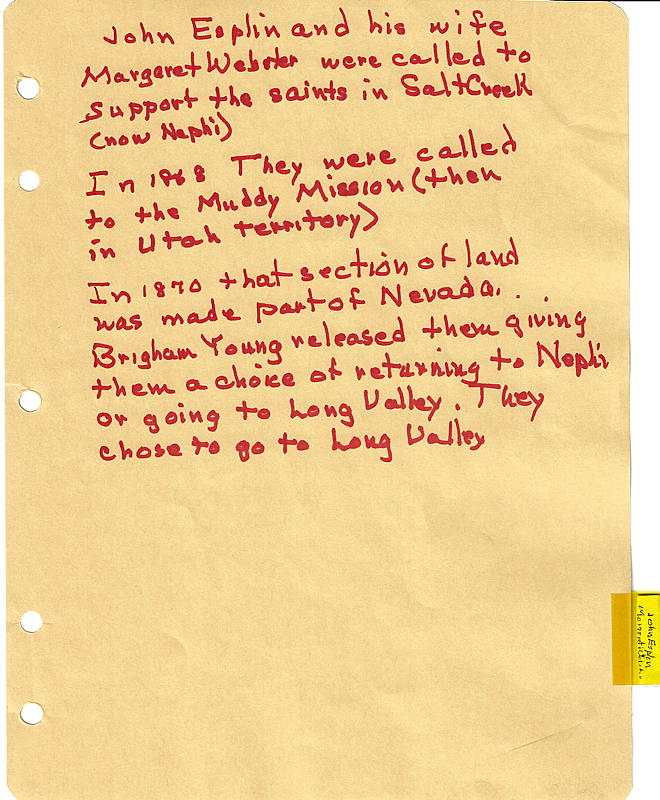 John Esplin and his wife
Margaret Webster were called to
support the saints in Salt Creek
(now Nephi)
In 1868 They were called
to the Muddy Mission (then
in Utah territory)
In 1870 that section of land
was made part of Nevada.
Brigham Young released them giving
them a choice of returning to Nephi
or going to Long Valley. They
chose to go to Long Valley
John Esplin